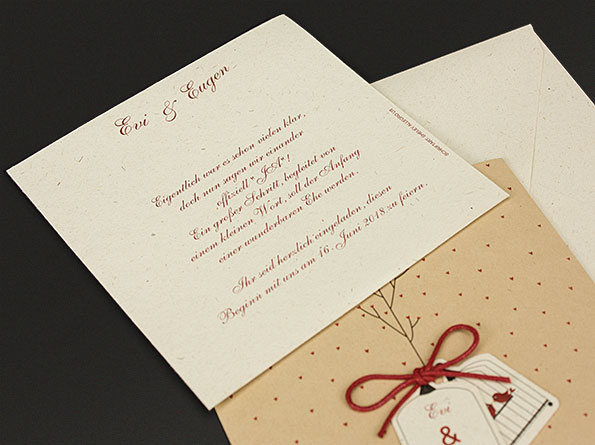 Evi & Eugen
Eigentlich war es schon vielen klar,
doch nun sagen wir einander
offiziell "JA"!
Ein großer Schritt, begleitet von
einem kleinen Wort, soll der Anfang
einer wunderbaren Ehe werden.
Ihr seid herzlich eingeladen, diesen
Beginn mit uns am 16. Juni 2018 zu feiern.
Evi
&